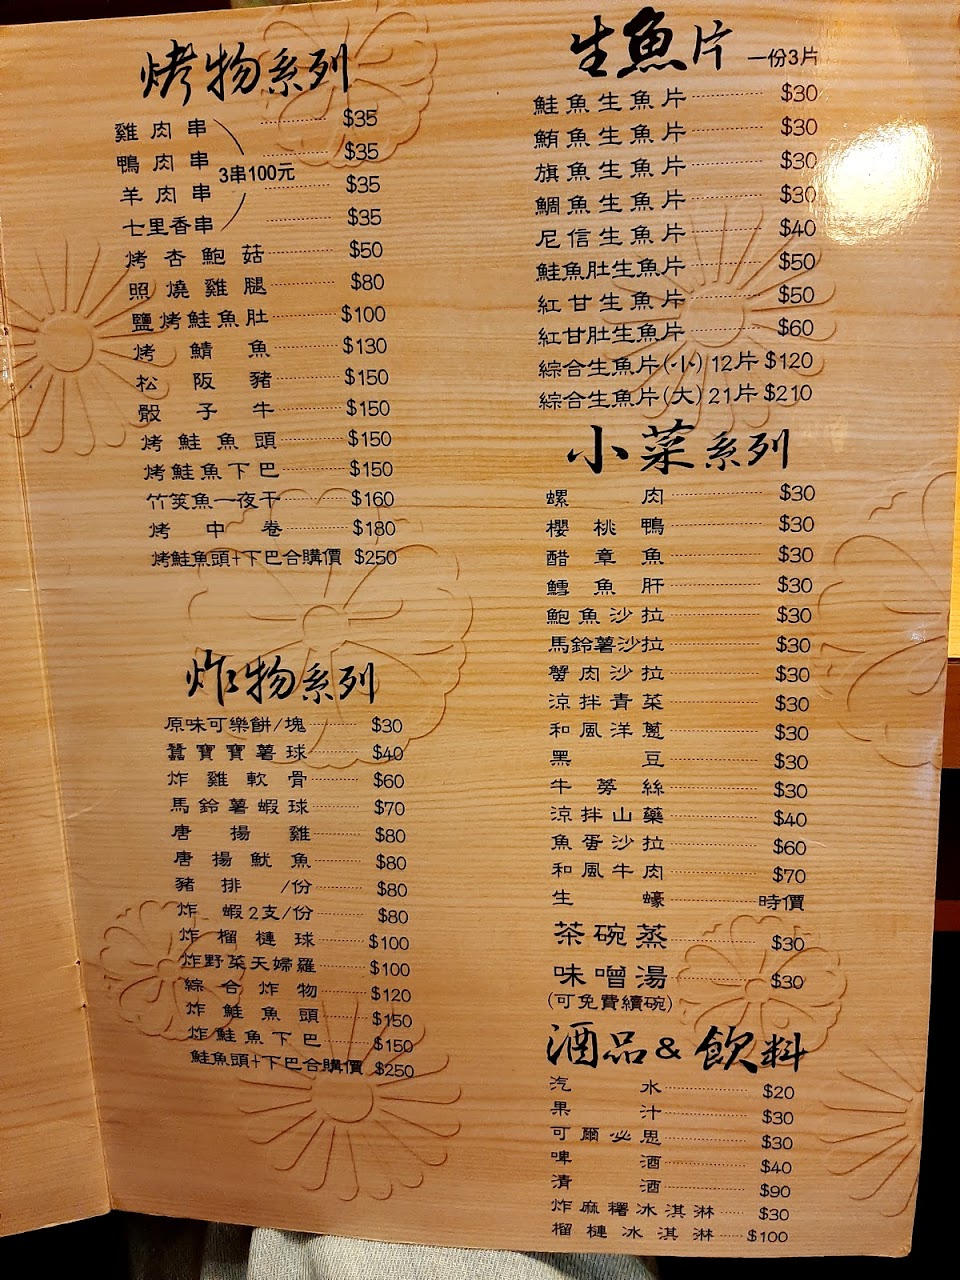 烤物系列
雞肉串 $35
鴨肉串 $35
3串100元
羊肉串 $35
七里香串 $35
烤杏鮑菇 $50
照燒雞腿 $80
鹽烤鮭魚肚 $100
烤鯖魚 $130
松阪豬 $150
骰子牛 $150
烤鮭魚頭 $150
烤鮭魚下巴 $150
竹筴魚一夜干 $160
烤中卷 $180
烤鮭魚頭+下巴合購價 $250
炸物系列
原味可樂餅/塊 $30
蠶寶寶薯球 $40
炸雞軟骨 $60
馬鈴薯蝦球 $70
唐揚雞 $80
唐揚魷魚 $80
豬排/份 $80
炸蝦2支/份 $80
炸榴槤球 $100
炸野菜天婦羅 $100
綜合炸物 $120
炸鮭魚頭 $150
炸鮭魚下巴 $150
鮭魚頭+下巴合購價 $250
生魚片 一份3片
鮭魚生魚片 $30
鮪魚生魚片 $30
旗魚生魚片 $30
鯛魚生魚片 $30
尼信生魚片 $40
鮭魚肚生魚片 $50
紅甘生魚片 $50
紅甘肚生魚片 $60
綜合生魚片(小)12片 $120
綜合生魚片(大)21片 $210
小菜系列
螺肉 $30
櫻桃鴨 $30
醋章魚 $30
鱈魚肝 $30
鮑魚沙拉 $30
馬鈴薯沙拉 $30
蟹肉沙拉 $30
涼拌青菜 $30
和風洋蔥 $30
黑豆 $30
牛蒡絲 $30
涼拌山藥 $40
魚蛋沙拉 $60
和風牛肉 $70
生蠔 時價
茶碗蒸 $30
味噌湯 $30
(可免費續碗)
酒品&飲料
汽水 $20
果汁 $30
可爾必思 $30
啤酒 $40
清酒 $90
炸麻糬冰淇淋 $30
榴槤冰淇淋 $100